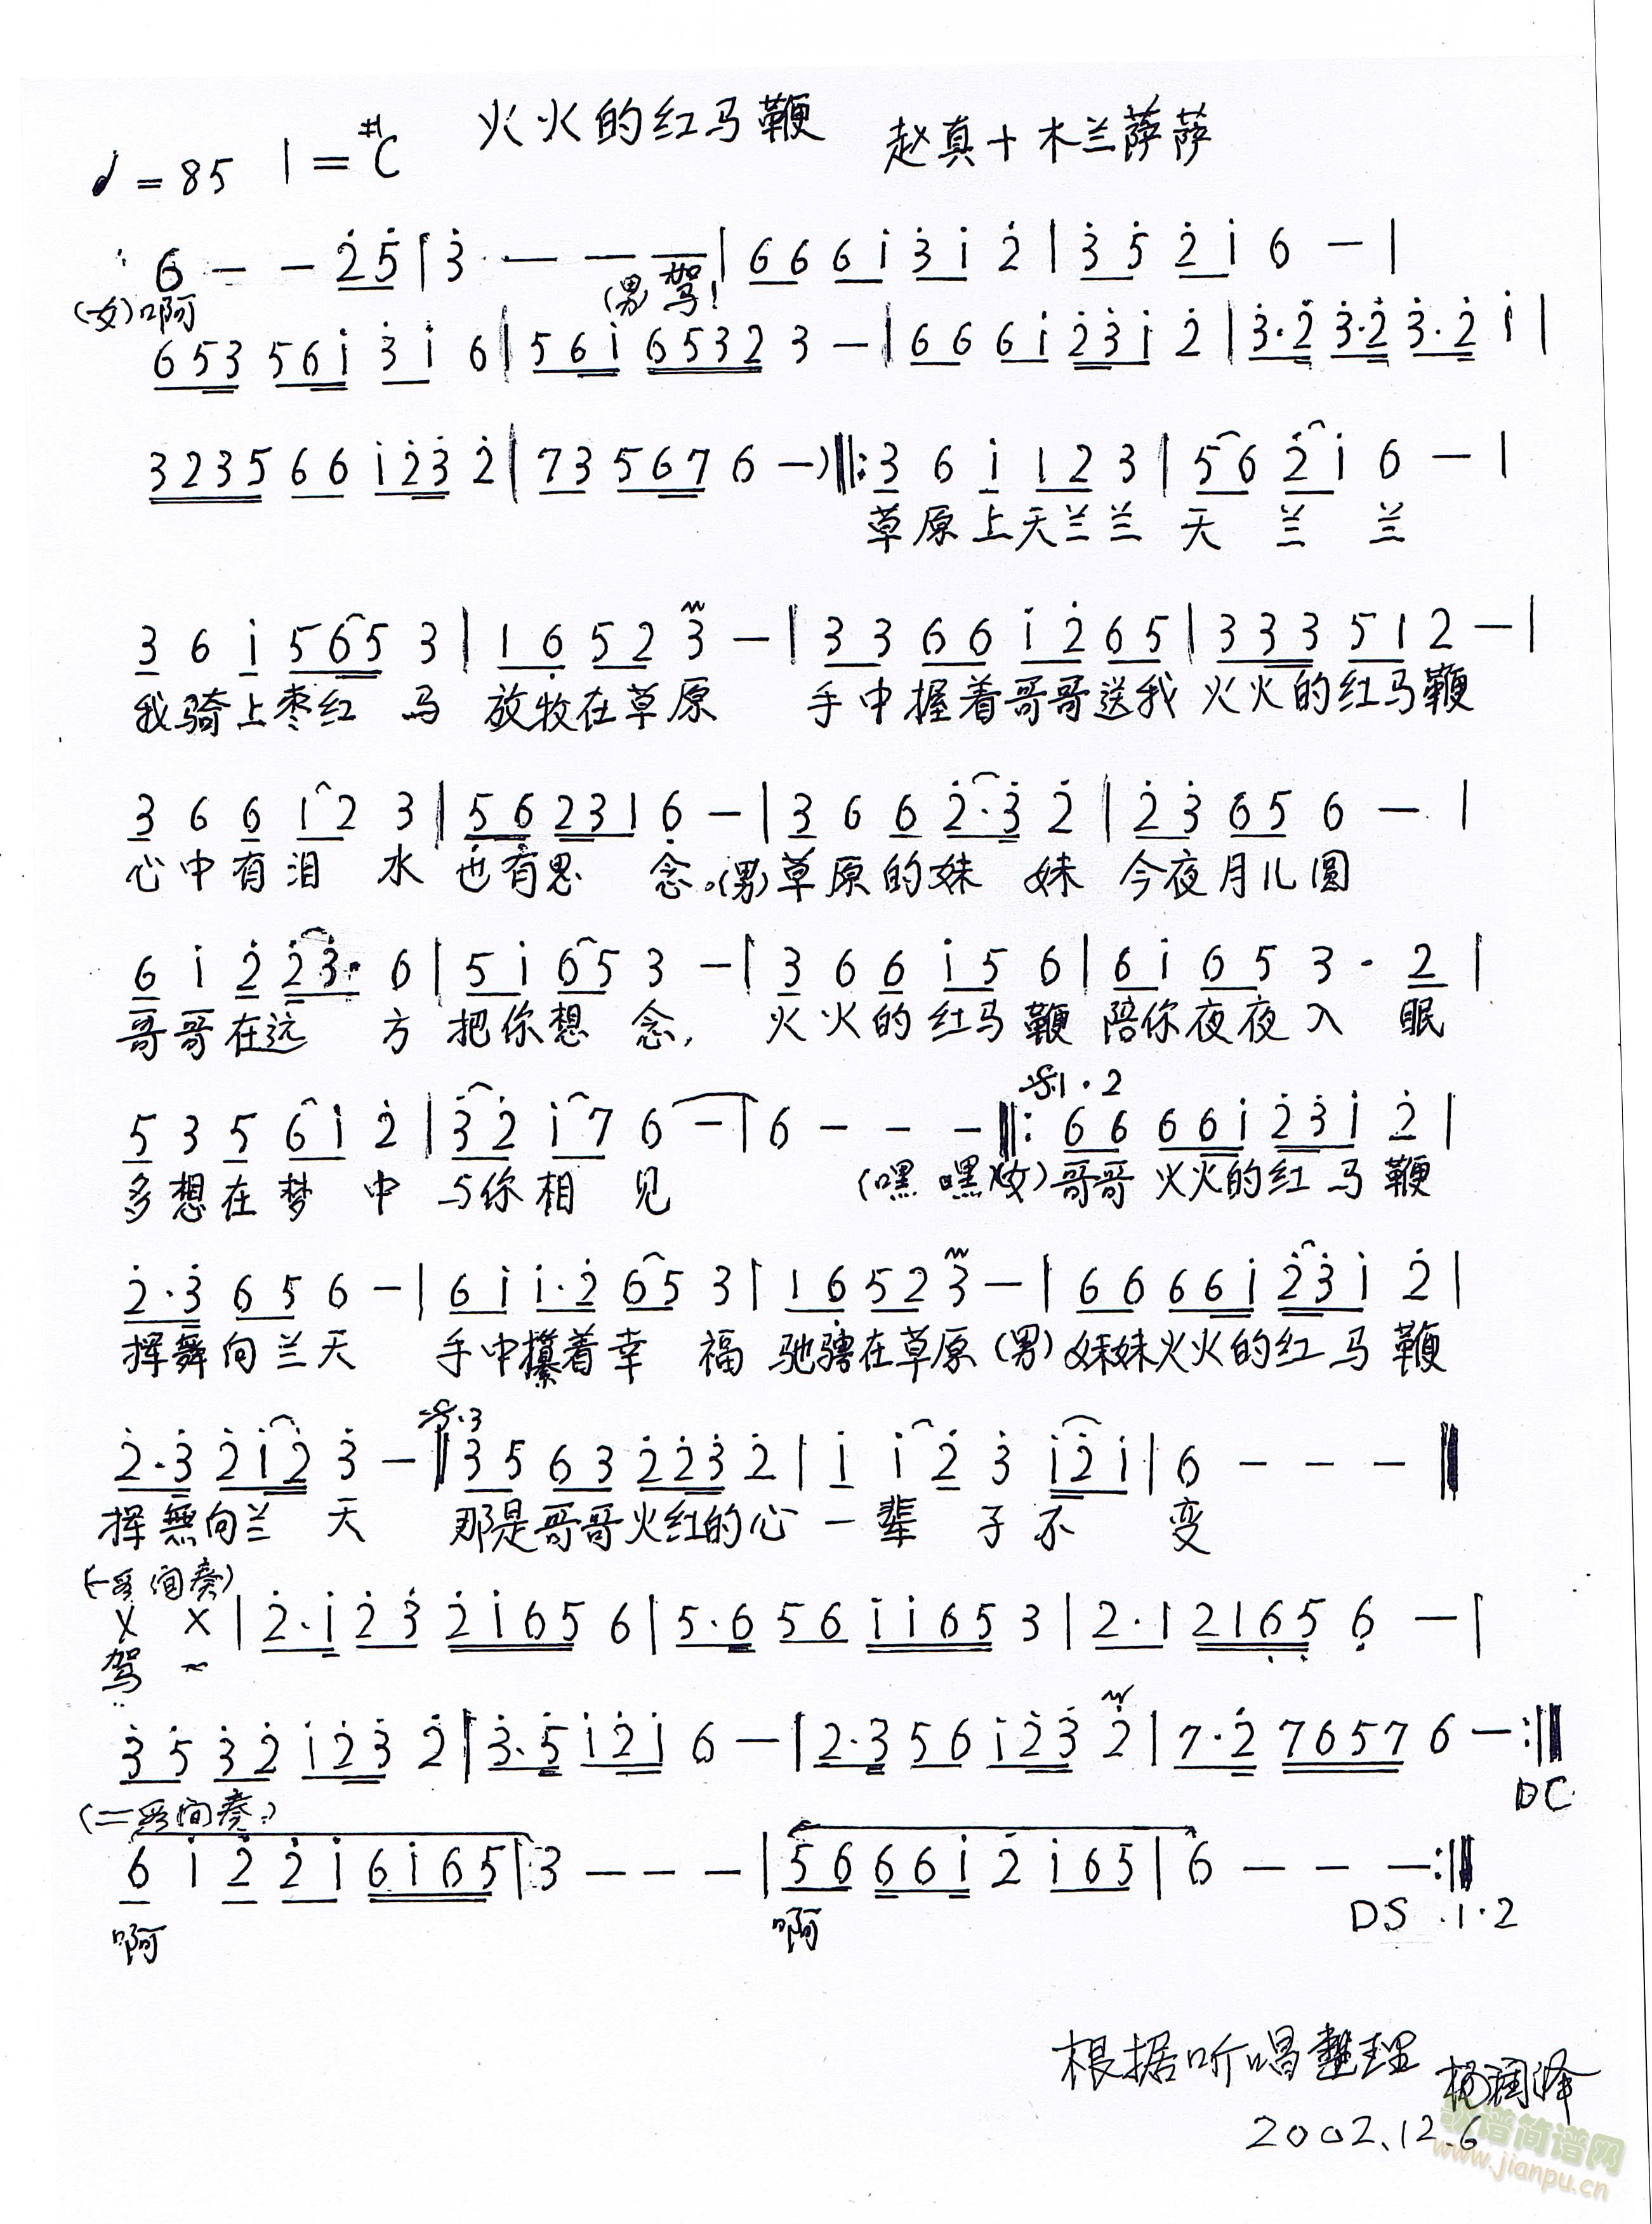 火火的红马鞭
赵真+木兰萨萨
♩=85 1=#C
6 - - 2̇5̇ | 3̇ - - - | 6 6 6 i 3̇ i 2̇ | 3̇ 5̇ 2̇ i 6 - |
(女)啊 (男)驾!
6 5 3 5 6 i 3̇ i 6 | 5 6 i 6 5 3 2 3 - | 6 6 6 i 2̇ 3̇ i 2̇ | 3̇·2̇ 3̇·2̇ 3̇·2̇ i |
3 2 3 5 6 6 i 2̇ 3̇ 2̇ | 7 3 5 6 7 6 -) ‖: 3 6 i 1 2 3 | 5 6 2̇ i 6 - |
草原上天兰兰 天 兰 兰
3 6 i 5 6 5 3 | 1 6̣ 5 2 3 - | 3 3 6 6 i 2̇ 6 5 | 3 3 3 5 1 2 - |
我骑上枣红 马 放牧在草原 手中握着哥哥送我 火火的红马鞭
3 6 6 1 2 3 | 5̣ 6̣ 2 3 1 6̣ - | 3 6 6 2̇·3̇ 2̇ | 2̇ 3̇ 6 5 6 - |
心中有泪 水 也有思 念。(男)草原的妹 妹 今夜月儿圆
6 i 2̇ 2̇ 3̇· 6 | 5 i 6 5 3 - | 3 6 6 i 5 6 | 6 i 6 5 3 · 2 |
哥哥在远 方 把你想 念, 火火的红马鞭 陪你夜夜入 眠
𝄋1·2
5 3 5 6 i 2̇ | 3̇ 2̇ i 7 6 - | 6 - - - ‖: 6 6 6 6 i 2̇ 3̇ i 2̇ |
多想在梦 中 与你相 见 (嘿 嘿 女)哥哥 火火的红 马 鞭
2̇·3̇ 6 5 6 - | 6 i i·2̇ 6 5 3 | 1 6̣ 5 2 3 - | 6 6 6 6 i 2̇ 3̇ i 2̇ |
挥舞向兰天 手中攥着幸 福 驰骋在草原 (男)妹妹火火的红 马 鞭
𝄋·3
2̇·3̇ 2̇ i 2̇ 3̇ - ‖ 3̇ 5 6 3 2̇ 2̇ 3̇ 2̇ | i i 2̇ 3̇ i 2̇ i | 6 - - - ‖
挥舞向兰 天 那是哥哥火红的心 一 辈 子 不 变
(一段间奏)
X X | 2̇·i 2̇ 3̇ 2̇ i 6 5 6 | 5·6 5 6 i i 6 5 3 | 2·1 2 1 6̣ 5̣ 6̣ - |
驾 〃
3̇ 5̇ 3̇ 2̇ i 2̇ 3̇ 2̇ | 3̇·5̇ i 2̇ i 6 - | 2·3 5 6 i 2̇ 3̇ 2̇ | 7·2̇ 7 6 5 7 6 - :‖
DC
(二段间奏)
6 i 2̇ 2̇ i 6 i 6 5 | 3 - - - | 5 6 6 6 i 2̇ i 6 5 | 6 - - - :‖
啊 啊 DS .1·2
根据听唱整理 杨润泽
2002.12.6
歌谱简谱网
www.jianpu.cn